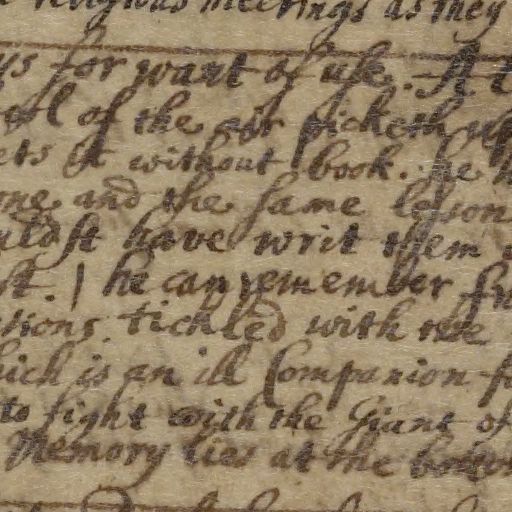 religious meetings as they
ys for want of use. A t
l of the air picketh up
ets it without book. he
one and the same lesson
uldst have writ them
st. | he can remember fr
tions tickled with the
hich is an ill Companion f
to fight with the Giant of
Memory lies at the bottom